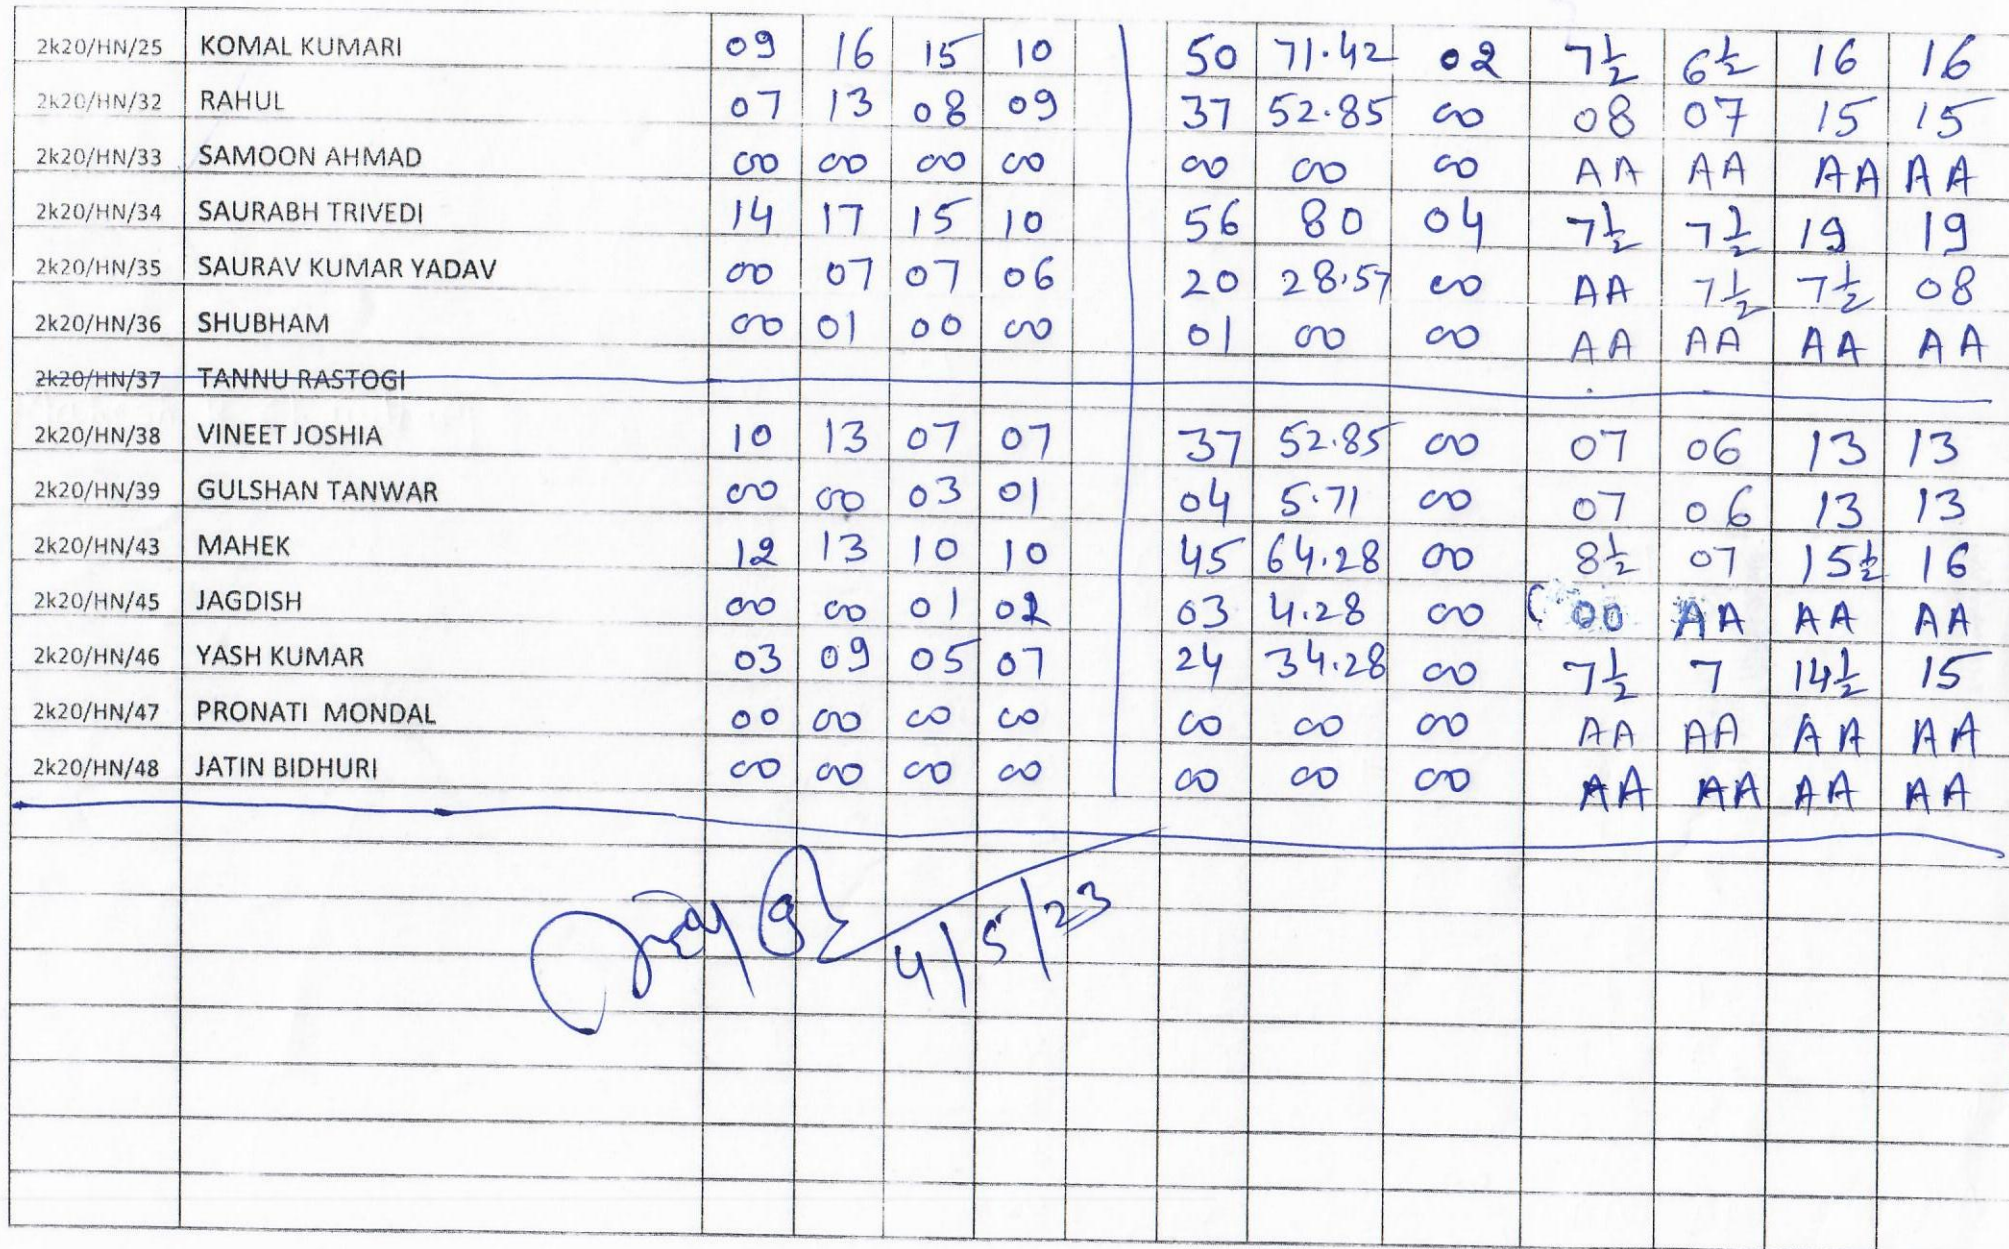 2k20/HN/25 KOMAL KUMARI 09 16 15 10 50 71.42 02 7½ 6½ 16 16
2k20/HN/32 RAHUL 07 13 08 09 37 52.85 00 08 07 15 15
2k20/HN/33 SAMOON AHMAD 00 00 00 00 00 00 00 AA AA AA AA
2k20/HN/34 SAURABH TRIVEDI 14 17 15 10 56 80 04 7½ 7½ 19 19
2k20/HN/35 SAURAV KUMAR YADAV 00 07 07 06 20 28.57 00 AA 7½ 7½ 08
2k20/HN/36 SHUBHAM 00 01 00 00 01 00 00 AA AA AA AA
2k20/HN/37 TANNU RASTOGI
2k20/HN/38 VINEET JOSHIA 10 13 07 07 37 52.85 00 07 06 13 13
2k20/HN/39 GULSHAN TANWAR 00 00 03 01 04 5.71 00 07 06 13 13
2k20/HN/43 MAHEK 12 13 10 10 45 64.28 00 8½ 07 15½ 16
2k20/HN/45 JAGDISH 00 00 01 02 03 4.28 00 00 AA AA AA
2k20/HN/46 YASH KUMAR 03 09 05 07 24 34.28 00 7½ 7 14½ 15
2k20/HN/47 PRONATI MONDAL 00 00 00 00 00 00 00 AA AA AA AA
2k20/HN/48 JATIN BIDHURI 00 00 00 00 00 00 00 AA AA AA AA
4/5/23